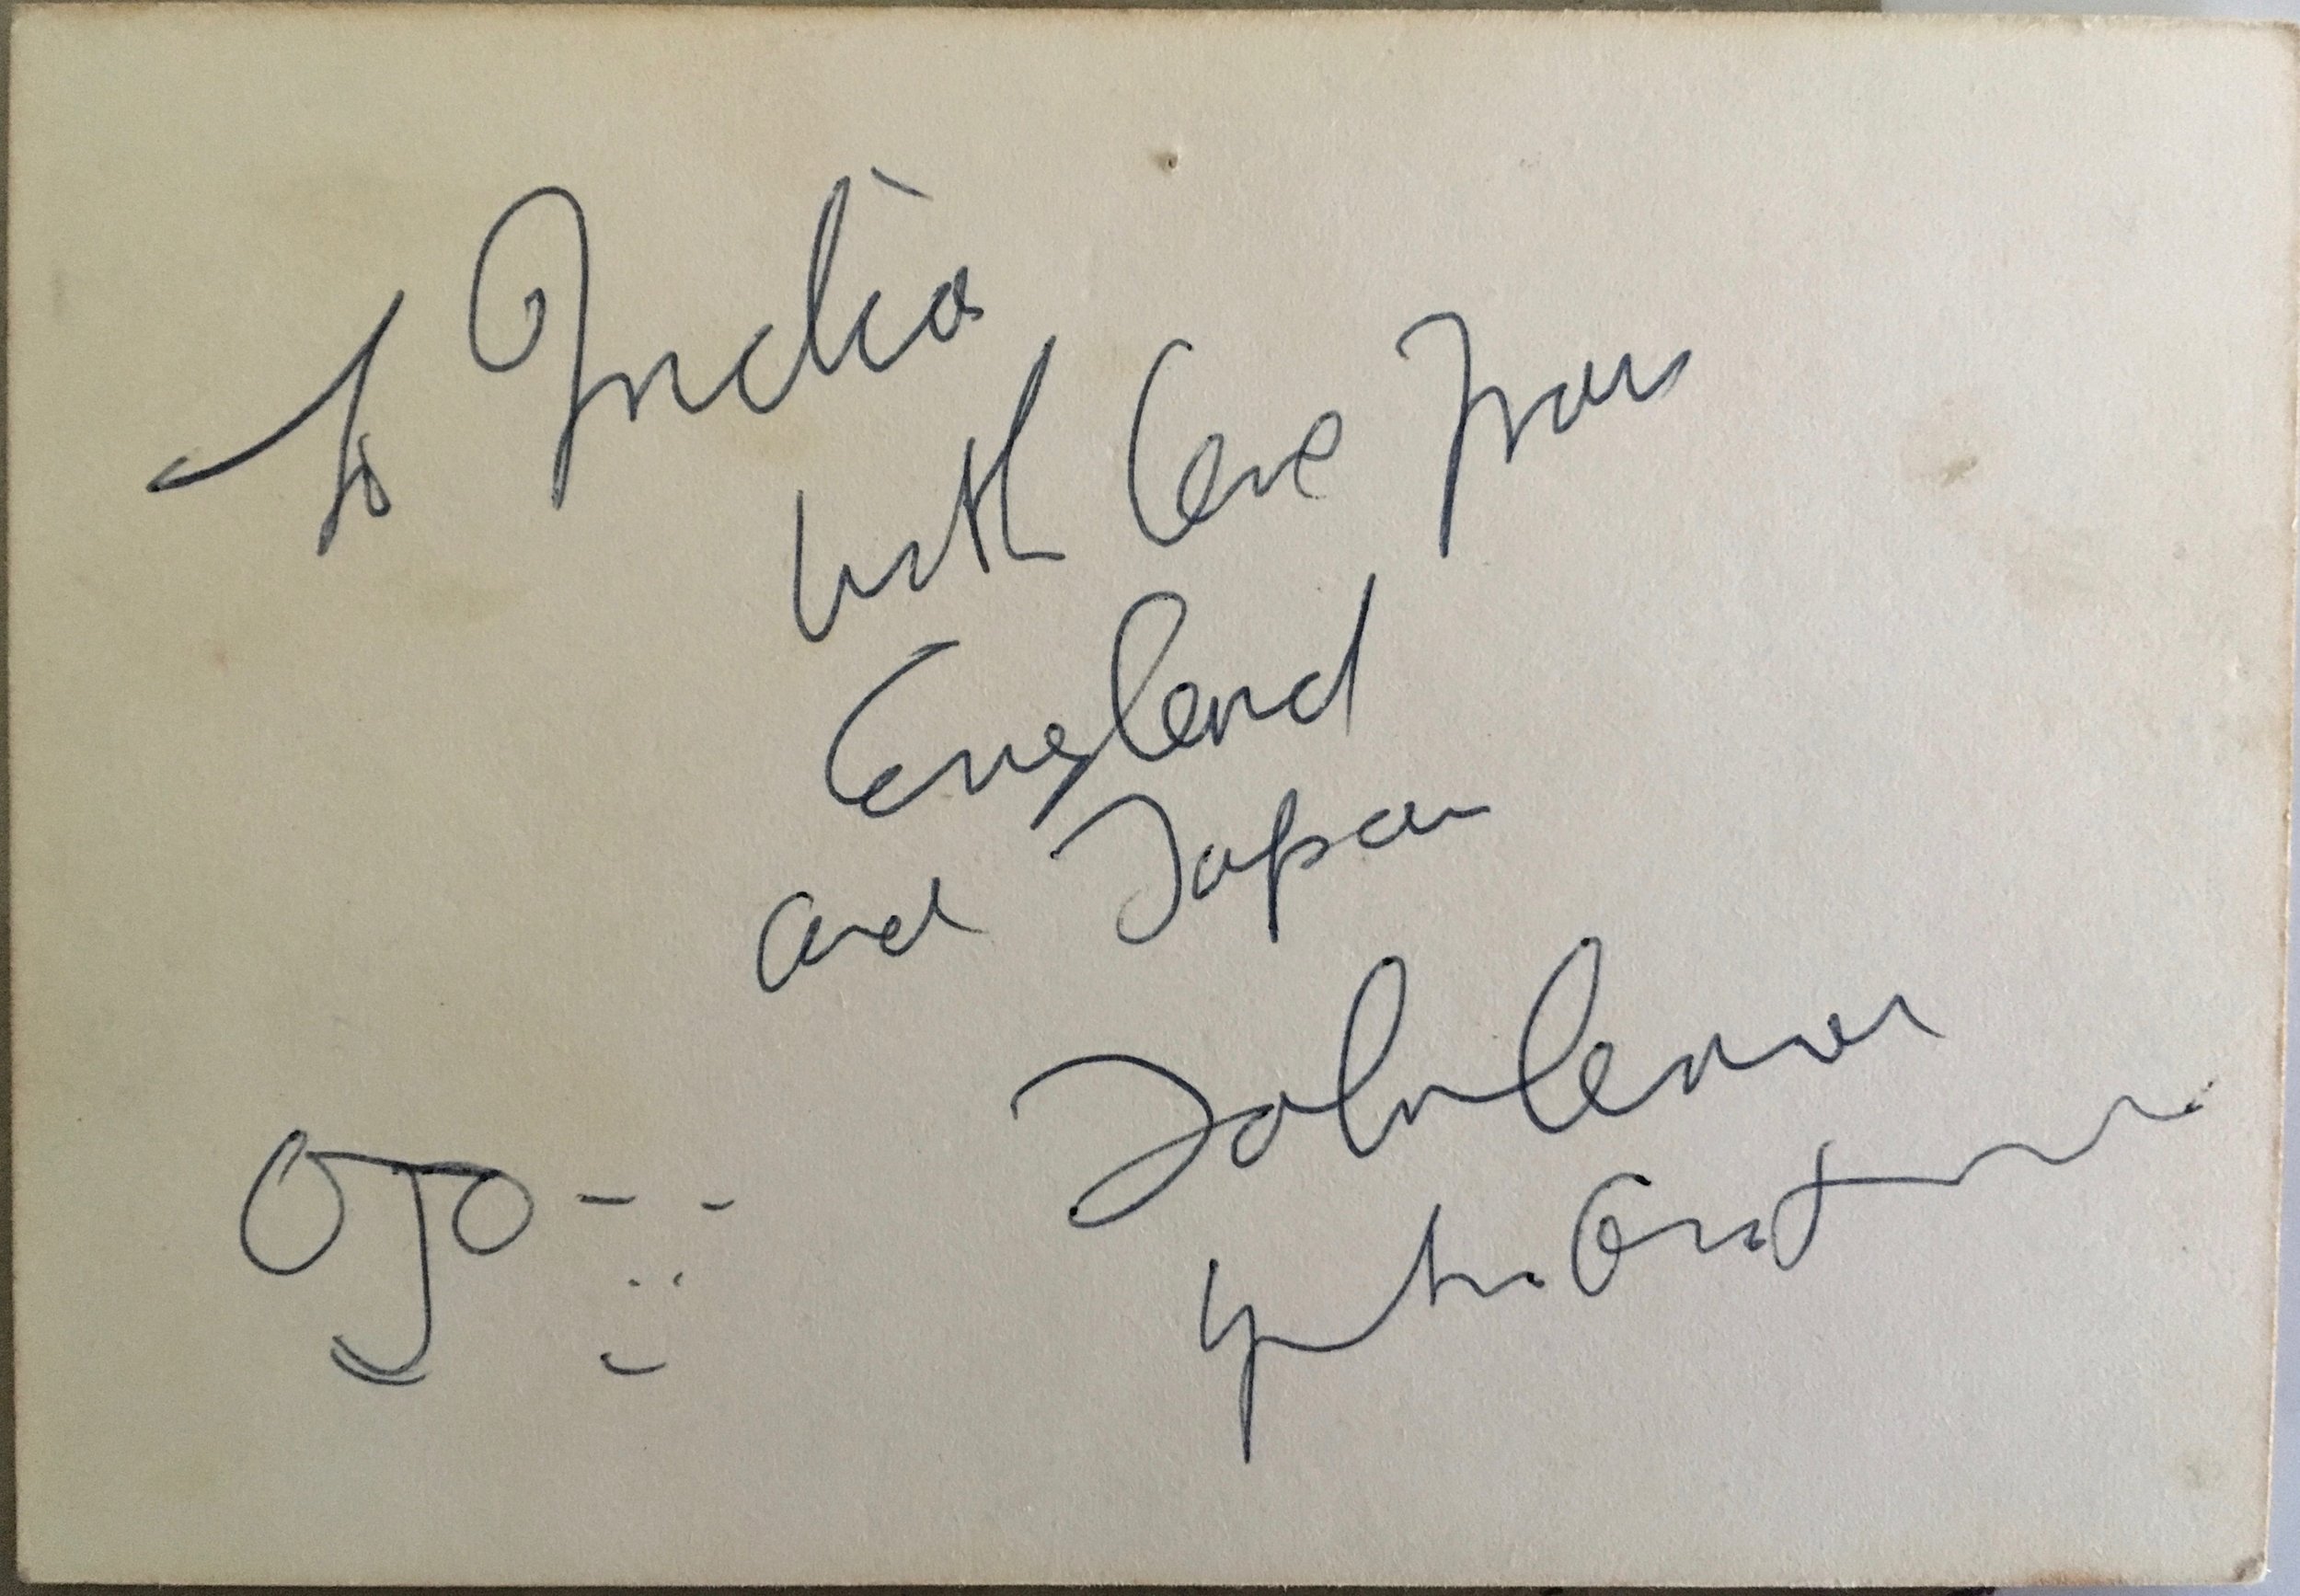 To India
with love from
England
and Japan
John Lennon
Yoko Ono